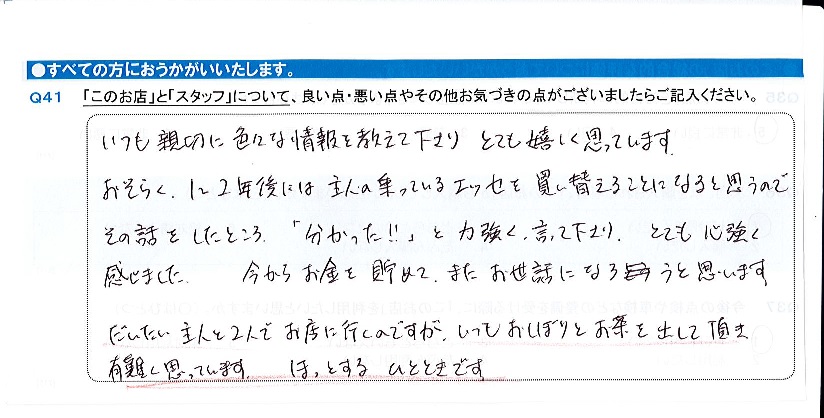 ●すべての方におうかがいいたします。
Q41 「このお店」と「スタッフ」について、良い点・悪い点やその他お気づきの点がございましたらご記入ください。
いつも親切に色々な情報を教えて下さり とても嬉しく思っています.
おそらく、1～2年後には主人の乗っているエッセを買い替えることになると思うので
その話をしたところ.「分かった!!」と力強く、言って下さり. とても心強く
感じました. 今からお金を貯めて、またお世話になろうと思います
だいたい主人と2人でお店に行くのですが、いつもおしぼりとお茶を出して頂き
有難く思っています. ほっとする ひとときです